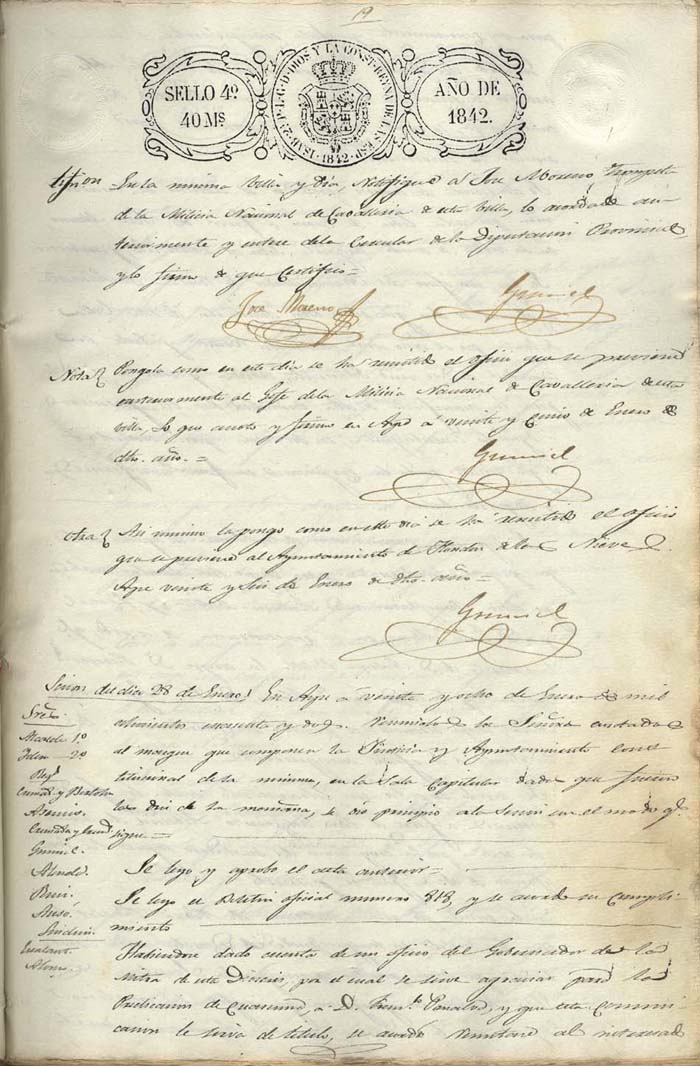 19
SELLO 4º
40 Ms
ISAB. 2ª P. L. G. D. DIOS Y LA CONST. REINA DE LAS ESP. 1842
AÑO DE
1842.
En la misma Villa y Día, Notifiqué al José Moreno Trompeta
de la Milicia Nacional de Cavalleria de esta Villa, lo acordado an
teriormente y entere de la Circular de la Diputacion Provincial,
y lo firmo de que Certifico =
José Moreno
Nota
Pongola como en este dia se ha remitido el oficio que se previene
anteriormente al Gefe de la Milicia Nacional de Cavalleria de esta
Villa, Lo que anoto y firmo en á veinte y cinco de Enero de
dho. año. =
Otra
Asi mismo la pongo como en este dia se ha remitido el oficio
que se previene al Ayuntamiento de de la Nieve
veinte y seis de Enero de dho. año =
Sesion del dia 28 de Enero
En á veinte y ocho de Enero de mil
ochocientos cuarenta y dos. Reunidos los Señores anotados
al margen que componen la Justicia y Ayuntamiento Cons
titucional de la misma, en la Sala Capitular dada que fueron
las diez de la mañana, se dio principio a la Sesion en el modo qe.
sigue =
Sres.
Alcalde 1º
Idem 2º
Se leyo y aprobo el acta anterior =
Se leyo el Boletin oficial numero 813, y se acordo su cumpli
miento
Habiendose dado cuenta de un oficio del Gobernador de la
Mitra de esta Diocesis, por el cual se sirve agraciar para la
Predicacion de Cuaresma, a D. y que esta Comuni
cacion le sirva de titulo, se acordó remitirse al interesado